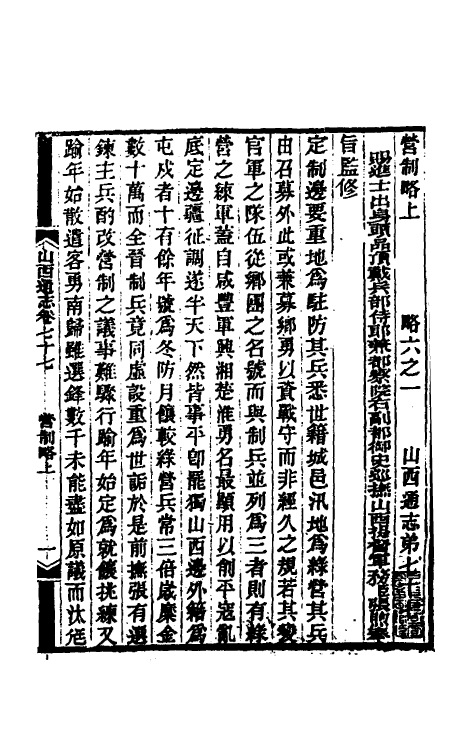 營制略上　略六之一　山西通志第七十七
賜進士出身頭品頂戴兵部侍郎兼都察院右副都御史巡撫山西提督軍務張煦奉
旨監修
定制邊要重地爲駐防其兵悉世籍城邑汛地爲綠營其兵
由召募外此或兼募鄉勇以資戰守而非經久之規若其變
官軍之隊伍從鄉團之名號而與制兵並列爲三者則有綠
營之練軍蓋自咸豐軍興湘楚淮勇名最顯用以創平寇亂
底定邊疆征調遂半天下然皆事平卽罷獨山西邊外籍爲
屯戍者十有餘年號爲冬防月饟較綠營兵常三倍歲糜金
數十萬而全晉制兵竟同虛設重爲世詬於是前撫張有選
鍊主兵酌改營制之議事難驟行踰年始定爲就饟挑練又
踰年始散遣客勇南歸雖選鋒數千未能盡如原議而汰疲
山西通志卷七十七　營制略上　一